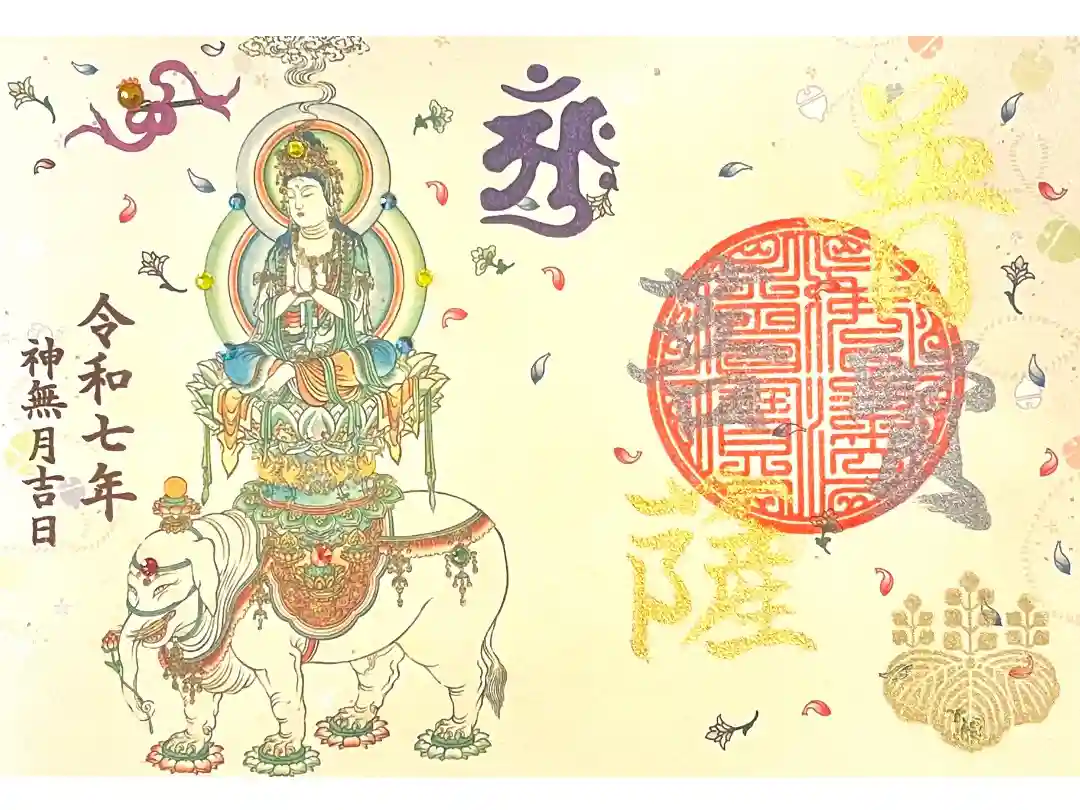 普賢
菩薩
令和七年
神無月吉日